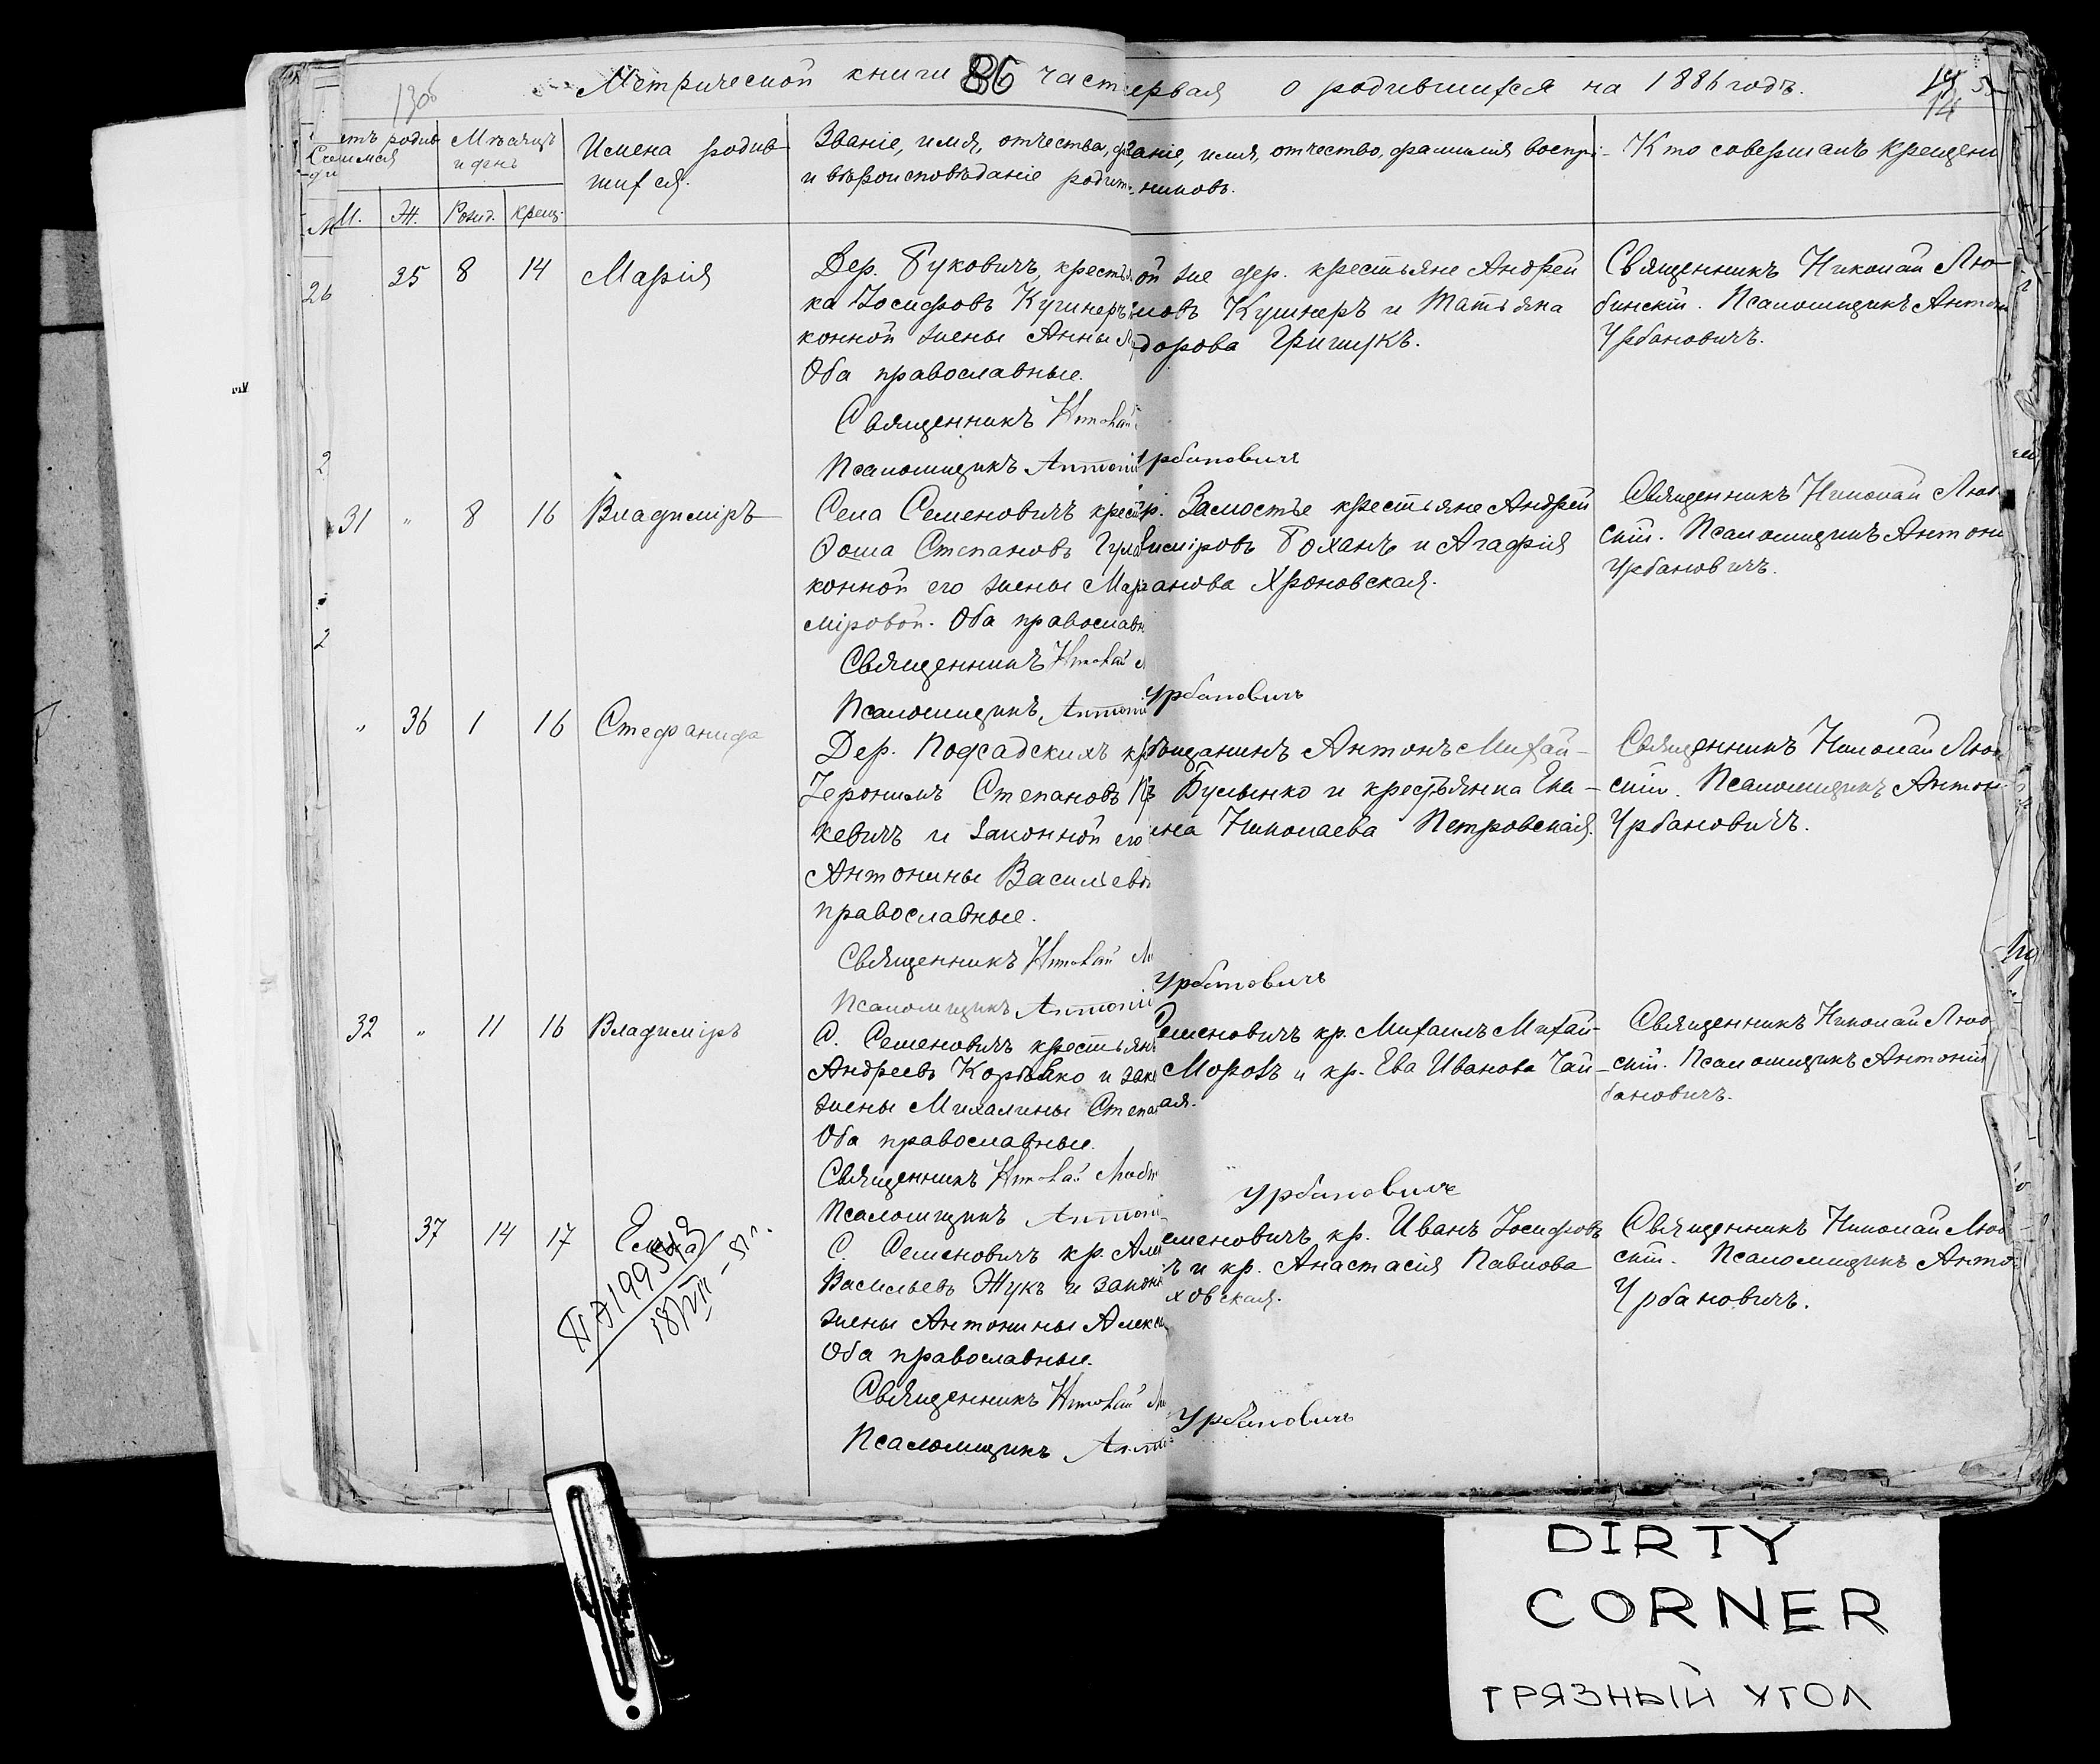 130
Метрической книги 86 част ервая о родившихся на 1886 годъ.
14
етъ родив
Мѣсяцъ
и день
Имена родив
шихся.
Званіе, имя, отчества,
и вѣроисповѣданіе родит
аніе, имя, отчество, фамилія воспрі-
никовъ.
Кто совершалъ крещени
М. Ж. Рожд. Крещ.
26
35 8 14 Марія
Дер. Буковичъ, крестья
ка Іосифовъ Кушнеръ
конной жены Анны
Оба православные.
Священникъ Николай
Псаломщикъ Антоній
ой же дер. крестьяне Андрей
мовъ Кушнеръ и Татьяна
дорова Гришукъ.
Урбановичъ
Священникъ Николай Лю-
бинскій. Псаломщикъ Антон
Урбановичъ.
31 " 8 16 Владиміръ
Села Семеновичъ крест
Ѳома Степановъ
конной его жены Мар
міровой. Оба православн
Священникъ Николай
Псаломщикъ Антоні
р. Замостье крестьяне Андрей
иміровъ Боханъ и Агафія
анова Хроновская.
Урбановичъ
Священникъ Николай Люб
скій. Псаломщикъ Антони
Урбановичъ.
" 36 1 16 Стефанида
Дер. Подсадскихъ кр
Іеронимъ Степановъ
кевичъ и законной его
Антонины Васильев
православные.
Священникъ Николай
Псаломщикъ Антоній
ѣщанинъ Антонъ Михай-
Булынко и крестьянка Ека-
ина Николаева Петровская.
Урбановичъ
Священникъ Николай Люб
скій. Псаломщикъ Антон
Урбановичъ.
32 " 11 16 Владиміръ
С. Семеновичъ крестьян
Андреевъ Корбько и зак
жены Михалины Степа
Оба православные.
Священникъ Николай Люби
Псаломщикъ Антоні
Семеновичъ кр. Михаилъ Михай-
Морозъ и кр. Ева Иванова Чай-
ая.
Урбановичъ
Священникъ Николай Люб
скій. Псаломщикъ Антоній
бановичъ.
37 14 17 Елена
С. Семеновичъ кр. Але
Васильевъ Жукъ и закон
жены Антонины Алекс
Оба православные.
Священникъ Николай
Псаломщикъ Анто
еменовичъ кр. Иванъ Іосифовъ
ъ и кр. Анастасія Павлова
ховская.
Урбановичъ
Священникъ Николай Люб
скій. Псаломщикъ Анто
Урбановичъ.
DIRTY
CORNER
ГРЯЗНЫЙ УГОЛ